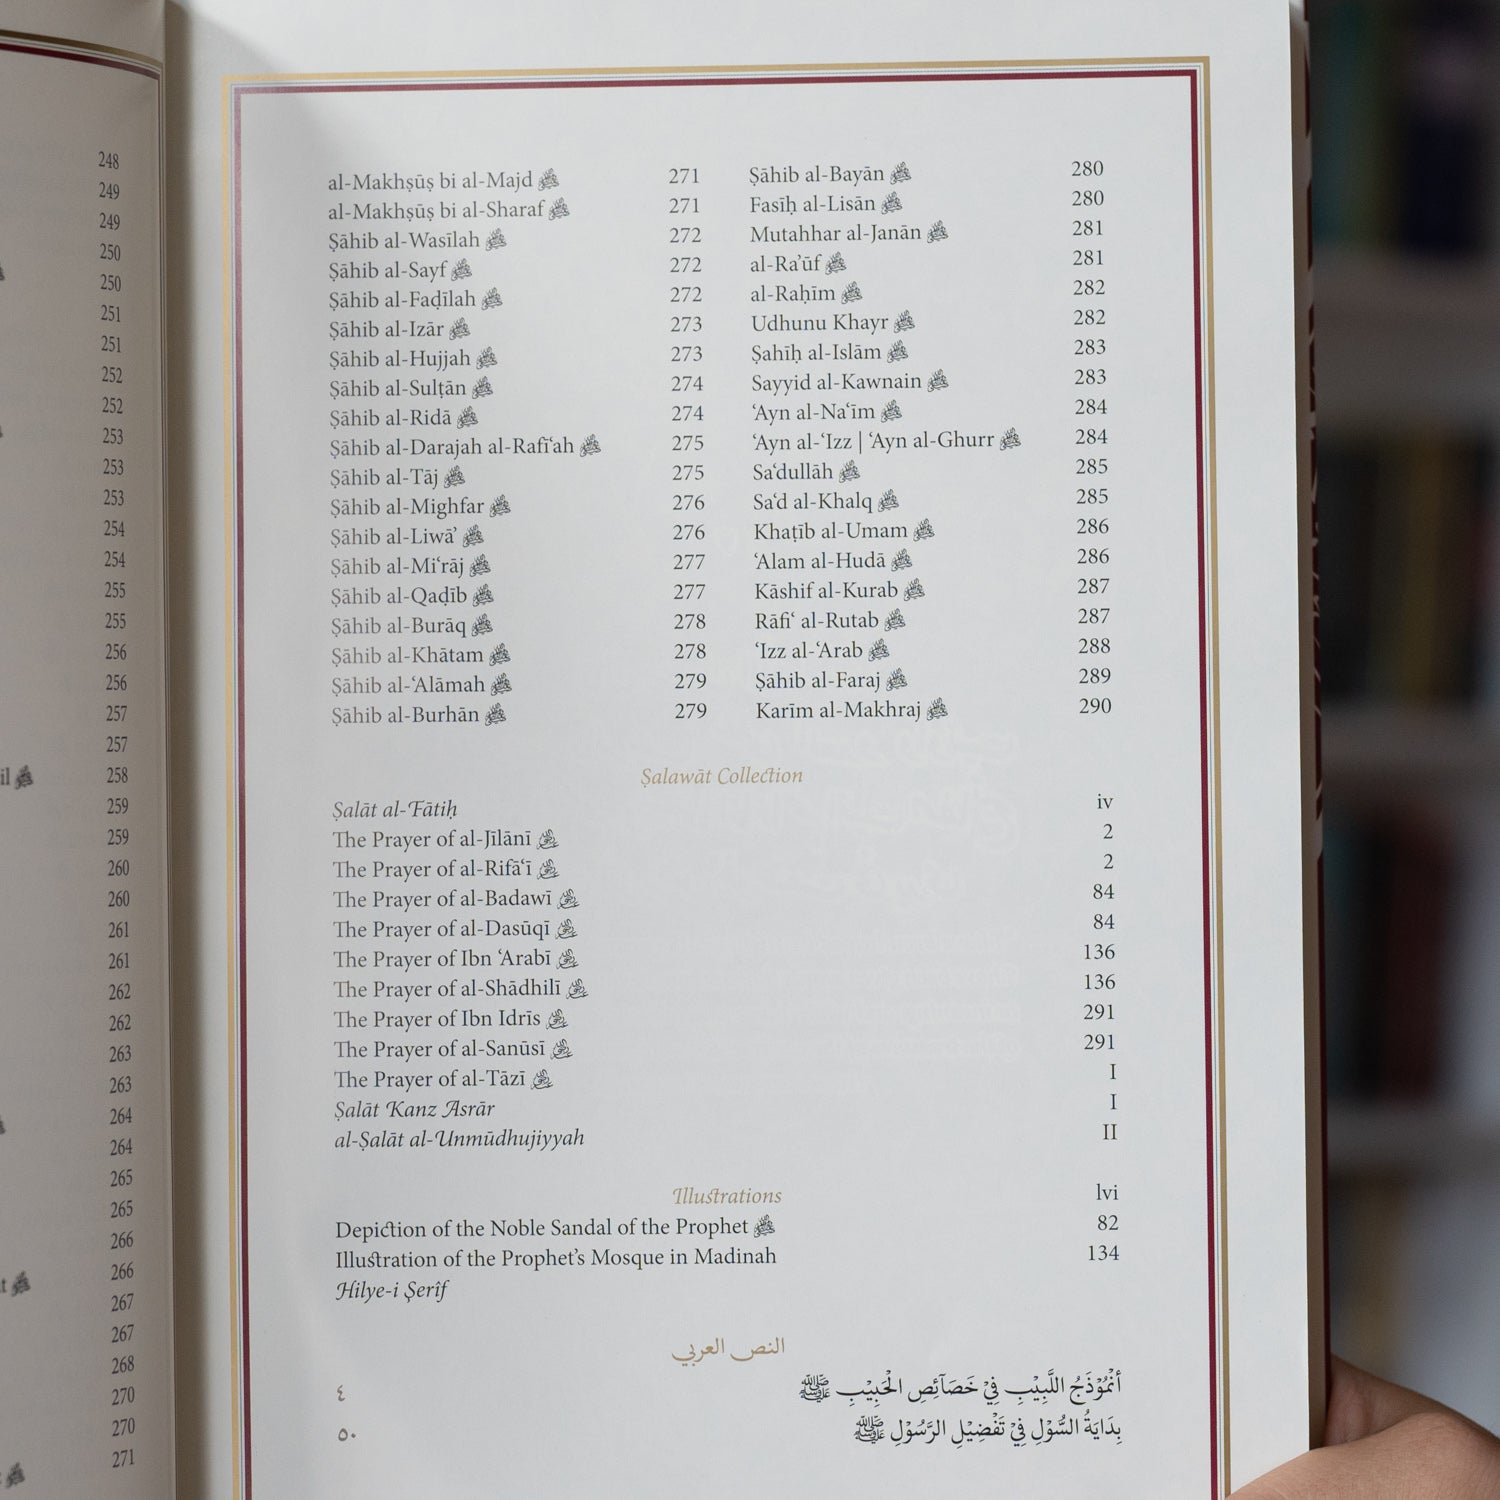 248
249
249
250
250
251
251
252
252
253
253
253
254
254
255
255
256
256
257
257
258
259
259
260
260
261
261
262
262
263
263
264
264
265
265
266
266
267
267
268
270
270
271
al-Makhṣūṣ bi al-Majd ﷺ 271
al-Makhṣūṣ bi al-Sharaf ﷺ 271
Ṣāhib al-Wasīlah ﷺ 272
Ṣāhib al-Sayf ﷺ 272
Ṣāhib al-Faḍīlah ﷺ 272
Ṣāhib al-Izār ﷺ 273
Ṣāhib al-Hujjah ﷺ 273
Ṣāhib al-Sulṭān ﷺ 274
Ṣāhib al-Ridā ﷺ 274
Ṣāhib al-Darajah al-Rafīʿah ﷺ 275
Ṣāhib al-Tāj ﷺ 275
Ṣāhib al-Mighfar ﷺ 276
Ṣāhib al-Liwāʾ ﷺ 276
Ṣāhib al-Miʿrāj ﷺ 277
Ṣāhib al-Qaḍīb ﷺ 277
Ṣāhib al-Burāq ﷺ 278
Ṣāhib al-Khātam ﷺ 278
Ṣāhib al-ʿAlāmah ﷺ 279
Ṣāhib al-Burhān ﷺ 279
Ṣāhib al-Bayān ﷺ 280
Fasīḥ al-Lisān ﷺ 280
Mutahhar al-Janān ﷺ 281
al-Raʾūf ﷺ 281
al-Raḥīm ﷺ 282
Udhunu Khayr ﷺ 282
Ṣahīḥ al-Islām ﷺ 283
Sayyid al-Kawnain ﷺ 283
ʿAyn al-Naʿīm ﷺ 284
ʿAyn al-ʿIzz | ʿAyn al-Ghurr ﷺ 284
Saʿdullāh ﷺ 285
Saʿd al-Khalq ﷺ 285
Khaṭīb al-Umam ﷺ 286
ʿAlam al-Hudā ﷺ 286
Kāshif al-Kurab ﷺ 287
Rāfiʿ al-Rutab ﷺ 287
ʿIzz al-ʿArab ﷺ 288
Ṣāhib al-Faraj ﷺ 289
Karīm al-Makhraj ﷺ 290
Ṣalawāt Collection
Ṣalāt al-Fātiḥ iv
The Prayer of al-Jīlānī 2
The Prayer of al-Rifāʿī 2
The Prayer of al-Badawī 84
The Prayer of al-Dasūqī 84
The Prayer of Ibn ʿArabī 136
The Prayer of al-Shādhilī 136
The Prayer of Ibn Idrīs 291
The Prayer of al-Sanūsī 291
The Prayer of al-Tāzī I
Ṣalāt Kanz Asrār I
al-Ṣalāt al-Unmūdhujiyyah II
Illustrations lvi
Depiction of the Noble Sandal of the Prophet ﷺ 82
Illustration of the Prophet’s Mosque in Madinah 134
Hilye-i Şerîf
النص العربي
أُنْمُوْذَجُ اللَّبِيْبِ فِيْ خَصَآئِصِ الْحَبِيْبِ ﷺ ٤
بِدَايَةُ السُّوْلِ فِيْ تَفْضِيْلِ الرَّسُوْلِ ﷺ ٥٠